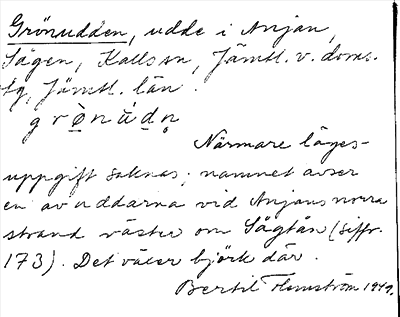 Grönudden, udde i Anjan,
Sågen, Kalls sn, Jämtl. v. doms.
tg, Jämtl. län.
grö̀núdn̥
Närmare läges-
uppgift saknas; namnet avser
en av uddarna vid Anjans norra
strand väster om Sågtån (siffr.
173). Det växer björk där.
Bertil Flemström 1949.